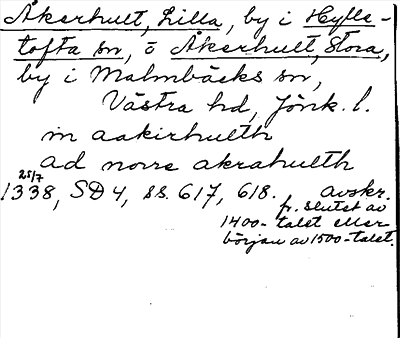 Åkerhult, Lilla, by i Hylle-
tofta sn, o Åkerhult, Stora,
by i Malmbäcks sn,
Västra hd, Jönk. l.
in aakirhulth
ad norre akrahulth
25/7
1338, SD 4, ss. 617, 618. avskr.
fr. slutet av
1400-talet eller
början av 1500-talet.